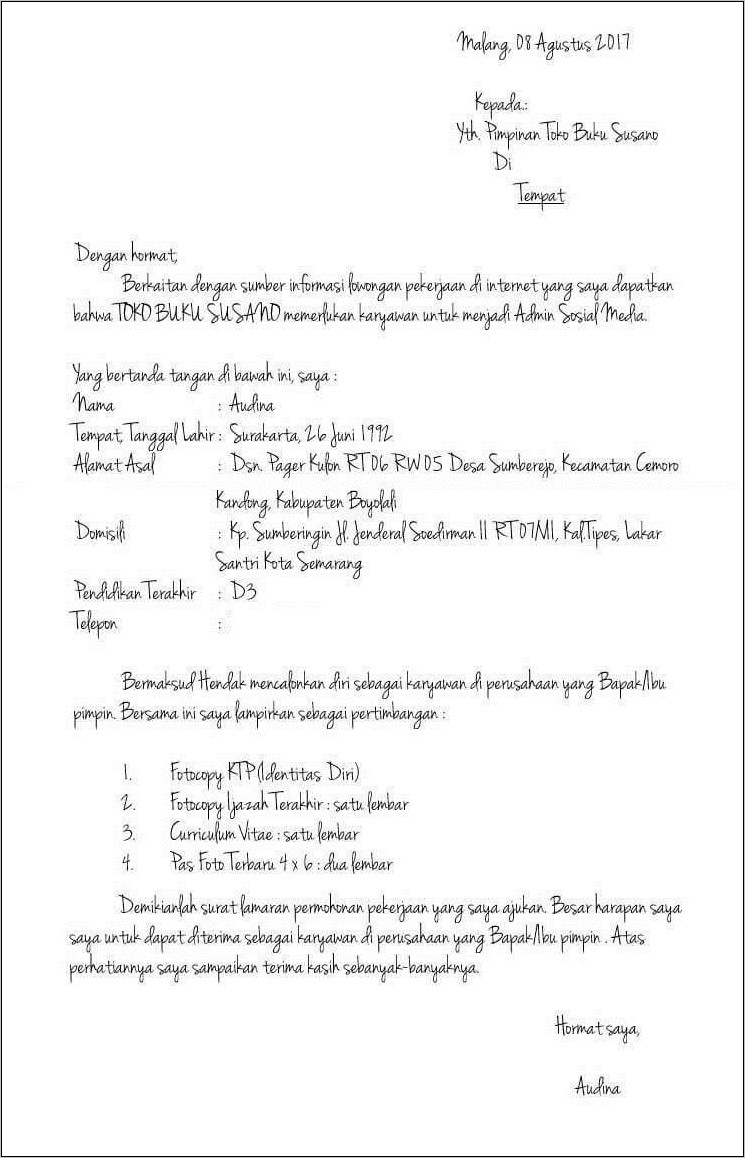 Malang, 08 Agustus 2017
Kepada.:
Yth. Pimpinan Toko Buku Susano
Di
Tempat
Dengan hormat,
Berkaitan dengan sumber informasi lowongan pekerjaan di internet yang saya dapatkan
bahwa TOKO BUKU SUSANO memerlukan karyawan untuk menjadi Admin Sosial Media.
Yang bertanda tangan di bawah ini, saya :
Nama : Audina
Tempat, Tanggal Lahir : Surakarta, 26 Juni 1992
Alamat Asal : Dsn. Pager Kulon RT 06 RW 05 Desa Sumberejo, Kecamatan Cemoro
Kandong, Kabupaten Boyolali
Domisili : Kp. Sumberingin Jl. Jenderal Soedirman II RT 07/VII, Kal.Tipes, Lakar
Santri Kota Semarang
Pendidikan Terakhir : D3
Telepon :
Bermaksud Hendak mencalonkan diri sebagai karyawan di perusahaan yang Bapak/Ibu
pimpin. Bersama ini saya lampirkan sebagai pertimbangan :
1. Fotocopy KTP (Identitas Diri)
2. Fotocopy Ijazah Terakhir : satu lembar
3. Curriculum Vitae : satu lembar
4. Pas Foto Terbaru 4 x 6 : dua lembar
Demikianlah surat lamaran permohonan pekerjaan yang saya ajukan. Besar harapan saya
saya untuk dapat diterima sebagai karyawan di perusahaan yang Bapak/Ibu pimpin . Atas
perhatiannya saya sampaikan terima kasih sebanyak-banyaknya.
Hormat saya,
Audina